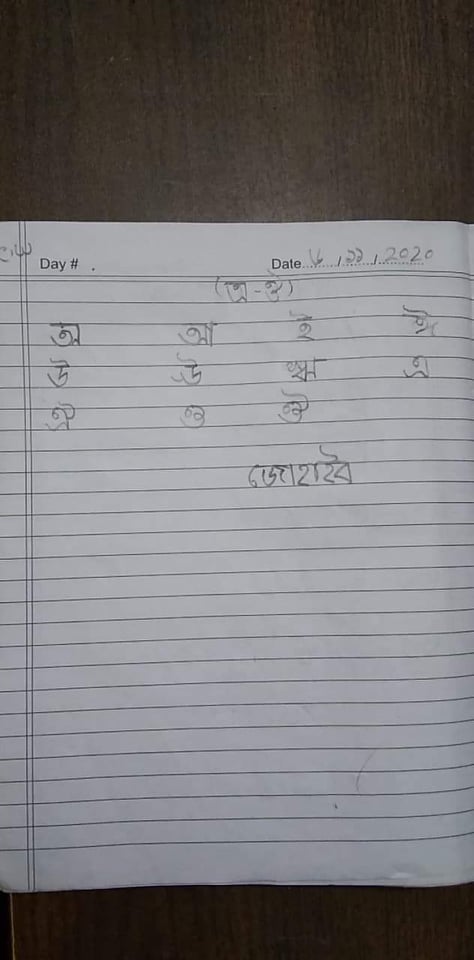 C.W
Day # . Date ৬ / ১১ / 2020
(অ-ঔ)
অ আ ই ঈ
উ ঊ ঋ এ
ঐ ও ঔ
জোহাইব